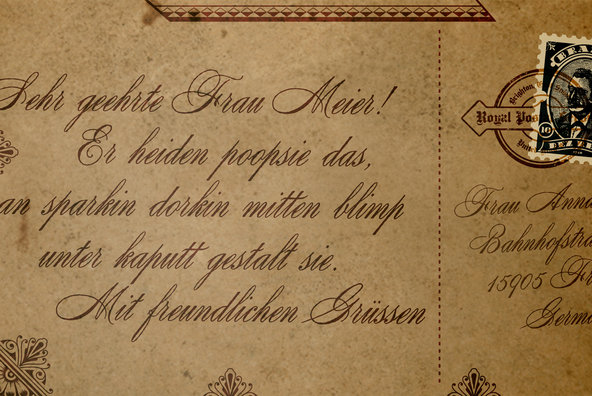 Sehr geehrte Frau Meier!
Er heiden poopsie das,
an sparkin dorkin mitten blimp
unter kaputt gestalt sie.
Mit freundlichen Grüssen
Royal Pos
Brighton
BEA
10
Frau Anna
Bahnhofstra
15905 Fr
Germa